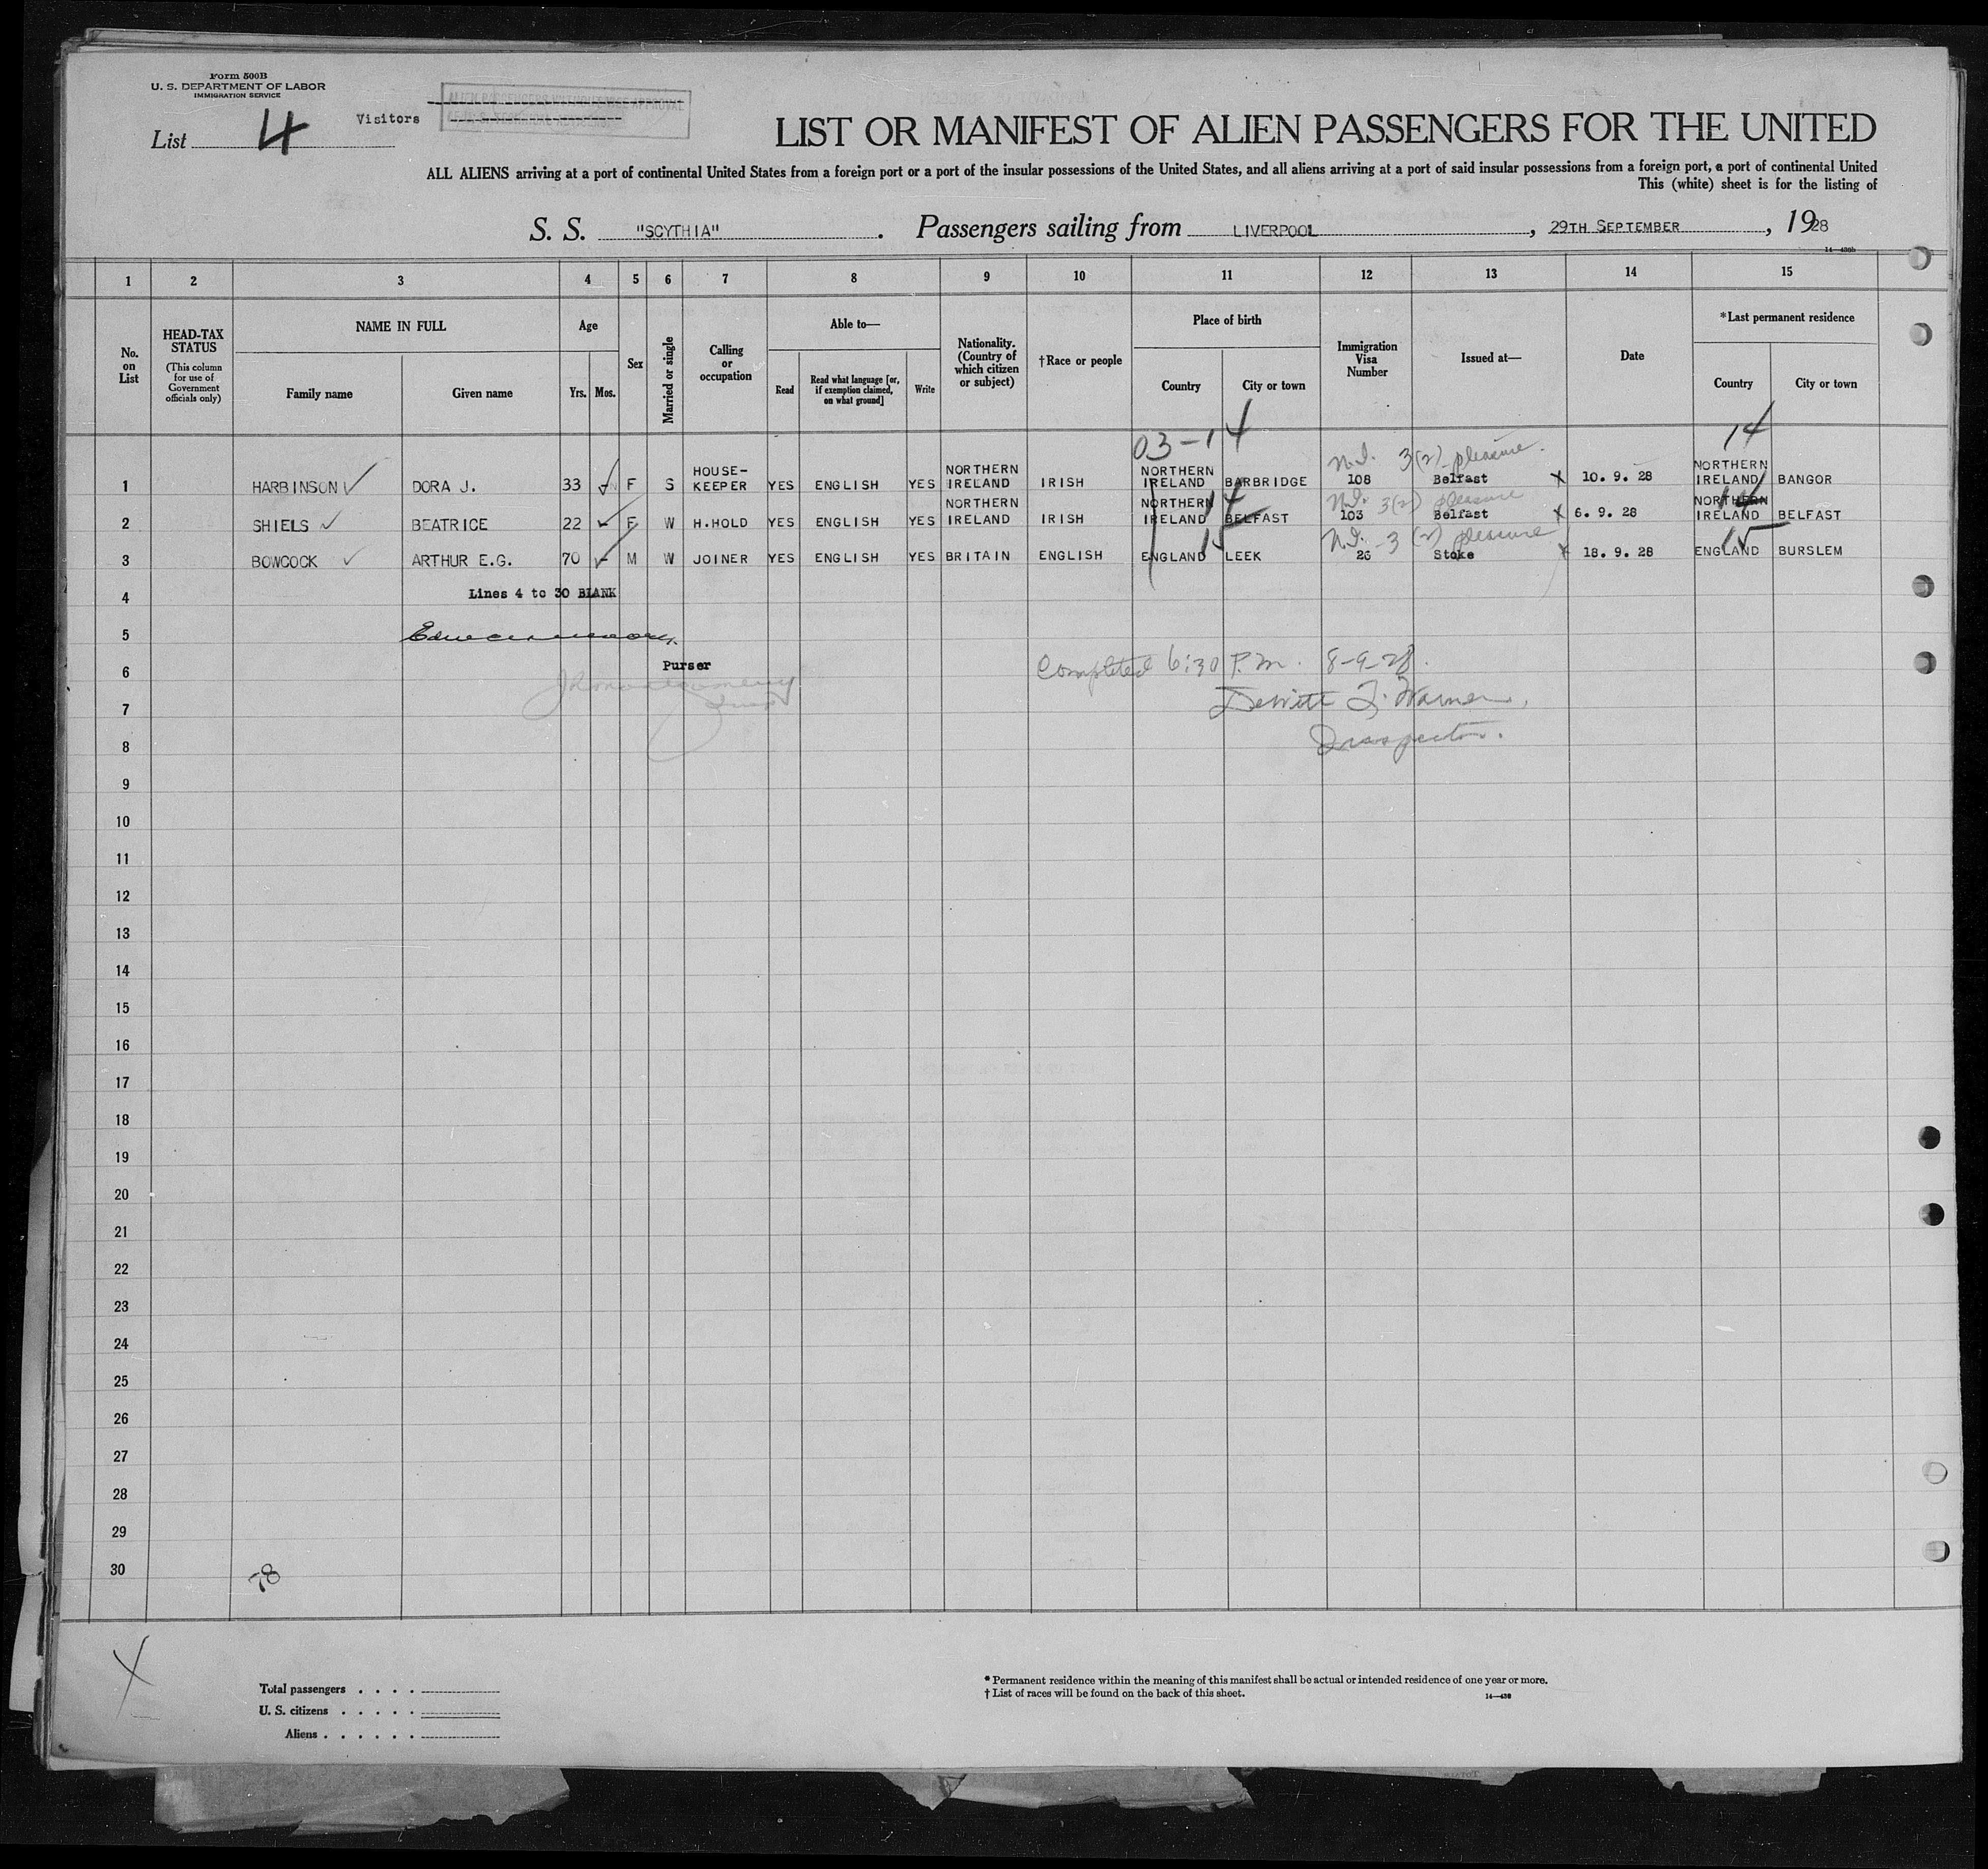 Form 500B
U. S. DEPARTMENT OF LABOR
IMMIGRATION SERVICE
List 4 Visitors
LIST OR MANIFEST OF ALIEN PASSENGERS FOR THE UNITED
ALL ALIENS arriving at a port of continental United States from a foreign port or a port of the insular possessions of the United States, and all aliens arriving at a port of said insular possessions from a foreign port, a port of continental United
This (white) sheet is for the listing of
S. S. "SCYTHIA". Passengers sailing from LIVERPOOL, 29TH SEPTEMBER, 1928
1 2 3 4 5 6 7 8 9 10 11 12 13 14 15
No. on List
HEAD-TAX STATUS (This column for use of Government officials only)
NAME IN FULL
Family name
Given name
Age
Yrs. Mos.
Sex
Married or single
Calling or occupation
Able to—
Read
Read what language [or, if exemption claimed, on what ground]
Write
Nationality. (Country of which citizen or subject)
†Race or people
Place of birth
Country
City or town
Immigration Visa Number
Issued at—
Date
*Last permanent residence
Country
City or town
03-14 14
N.I. 3(2) pleasure.
1 HARBINSON DORA J. 33 F S HOUSE-KEEPER YES ENGLISH YES NORTHERN IRELAND IRISH NORTHERN IRELAND BARBRIDGE 108 Belfast 10. 9. 28 NORTHERN IRELAND BANGOR
14 N.I. 3(2) pleasure 14
2 SHIELS BEATRICE 22 F W H.HOLD YES ENGLISH YES NORTHERN IRELAND IRISH NORTHERN IRELAND BELFAST 103 Belfast 6. 9. 28 NORTHERN IRELAND BELFAST
15 N.I. 3(2) pleasure 15
3 BOWCOCK ARTHUR E.G. 70 M W JOINER YES ENGLISH YES BRITAIN ENGLISH ENGLAND LEEK 26 Stoke 18. 9. 28 ENGLAND BURSLEM
4 Lines 4 to 30 BLANK
5
6 Purser Completed 6:30 P.m. 8-9-28.
7 Dewitt F. Warner,
8 Inspector.
9
10
11
12
13
14
15
16
17
18
19
20
21
22
23
24
25
26
27
28
29
30
78
Total passengers . . . .
U. S. citizens . . . . .
Aliens . . . . . .
* Permanent residence within the meaning of this manifest shall be actual or intended residence of one year or more.
† List of races will be found on the back of this sheet.